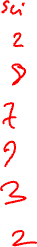 sci
2
8
7
9
3
2